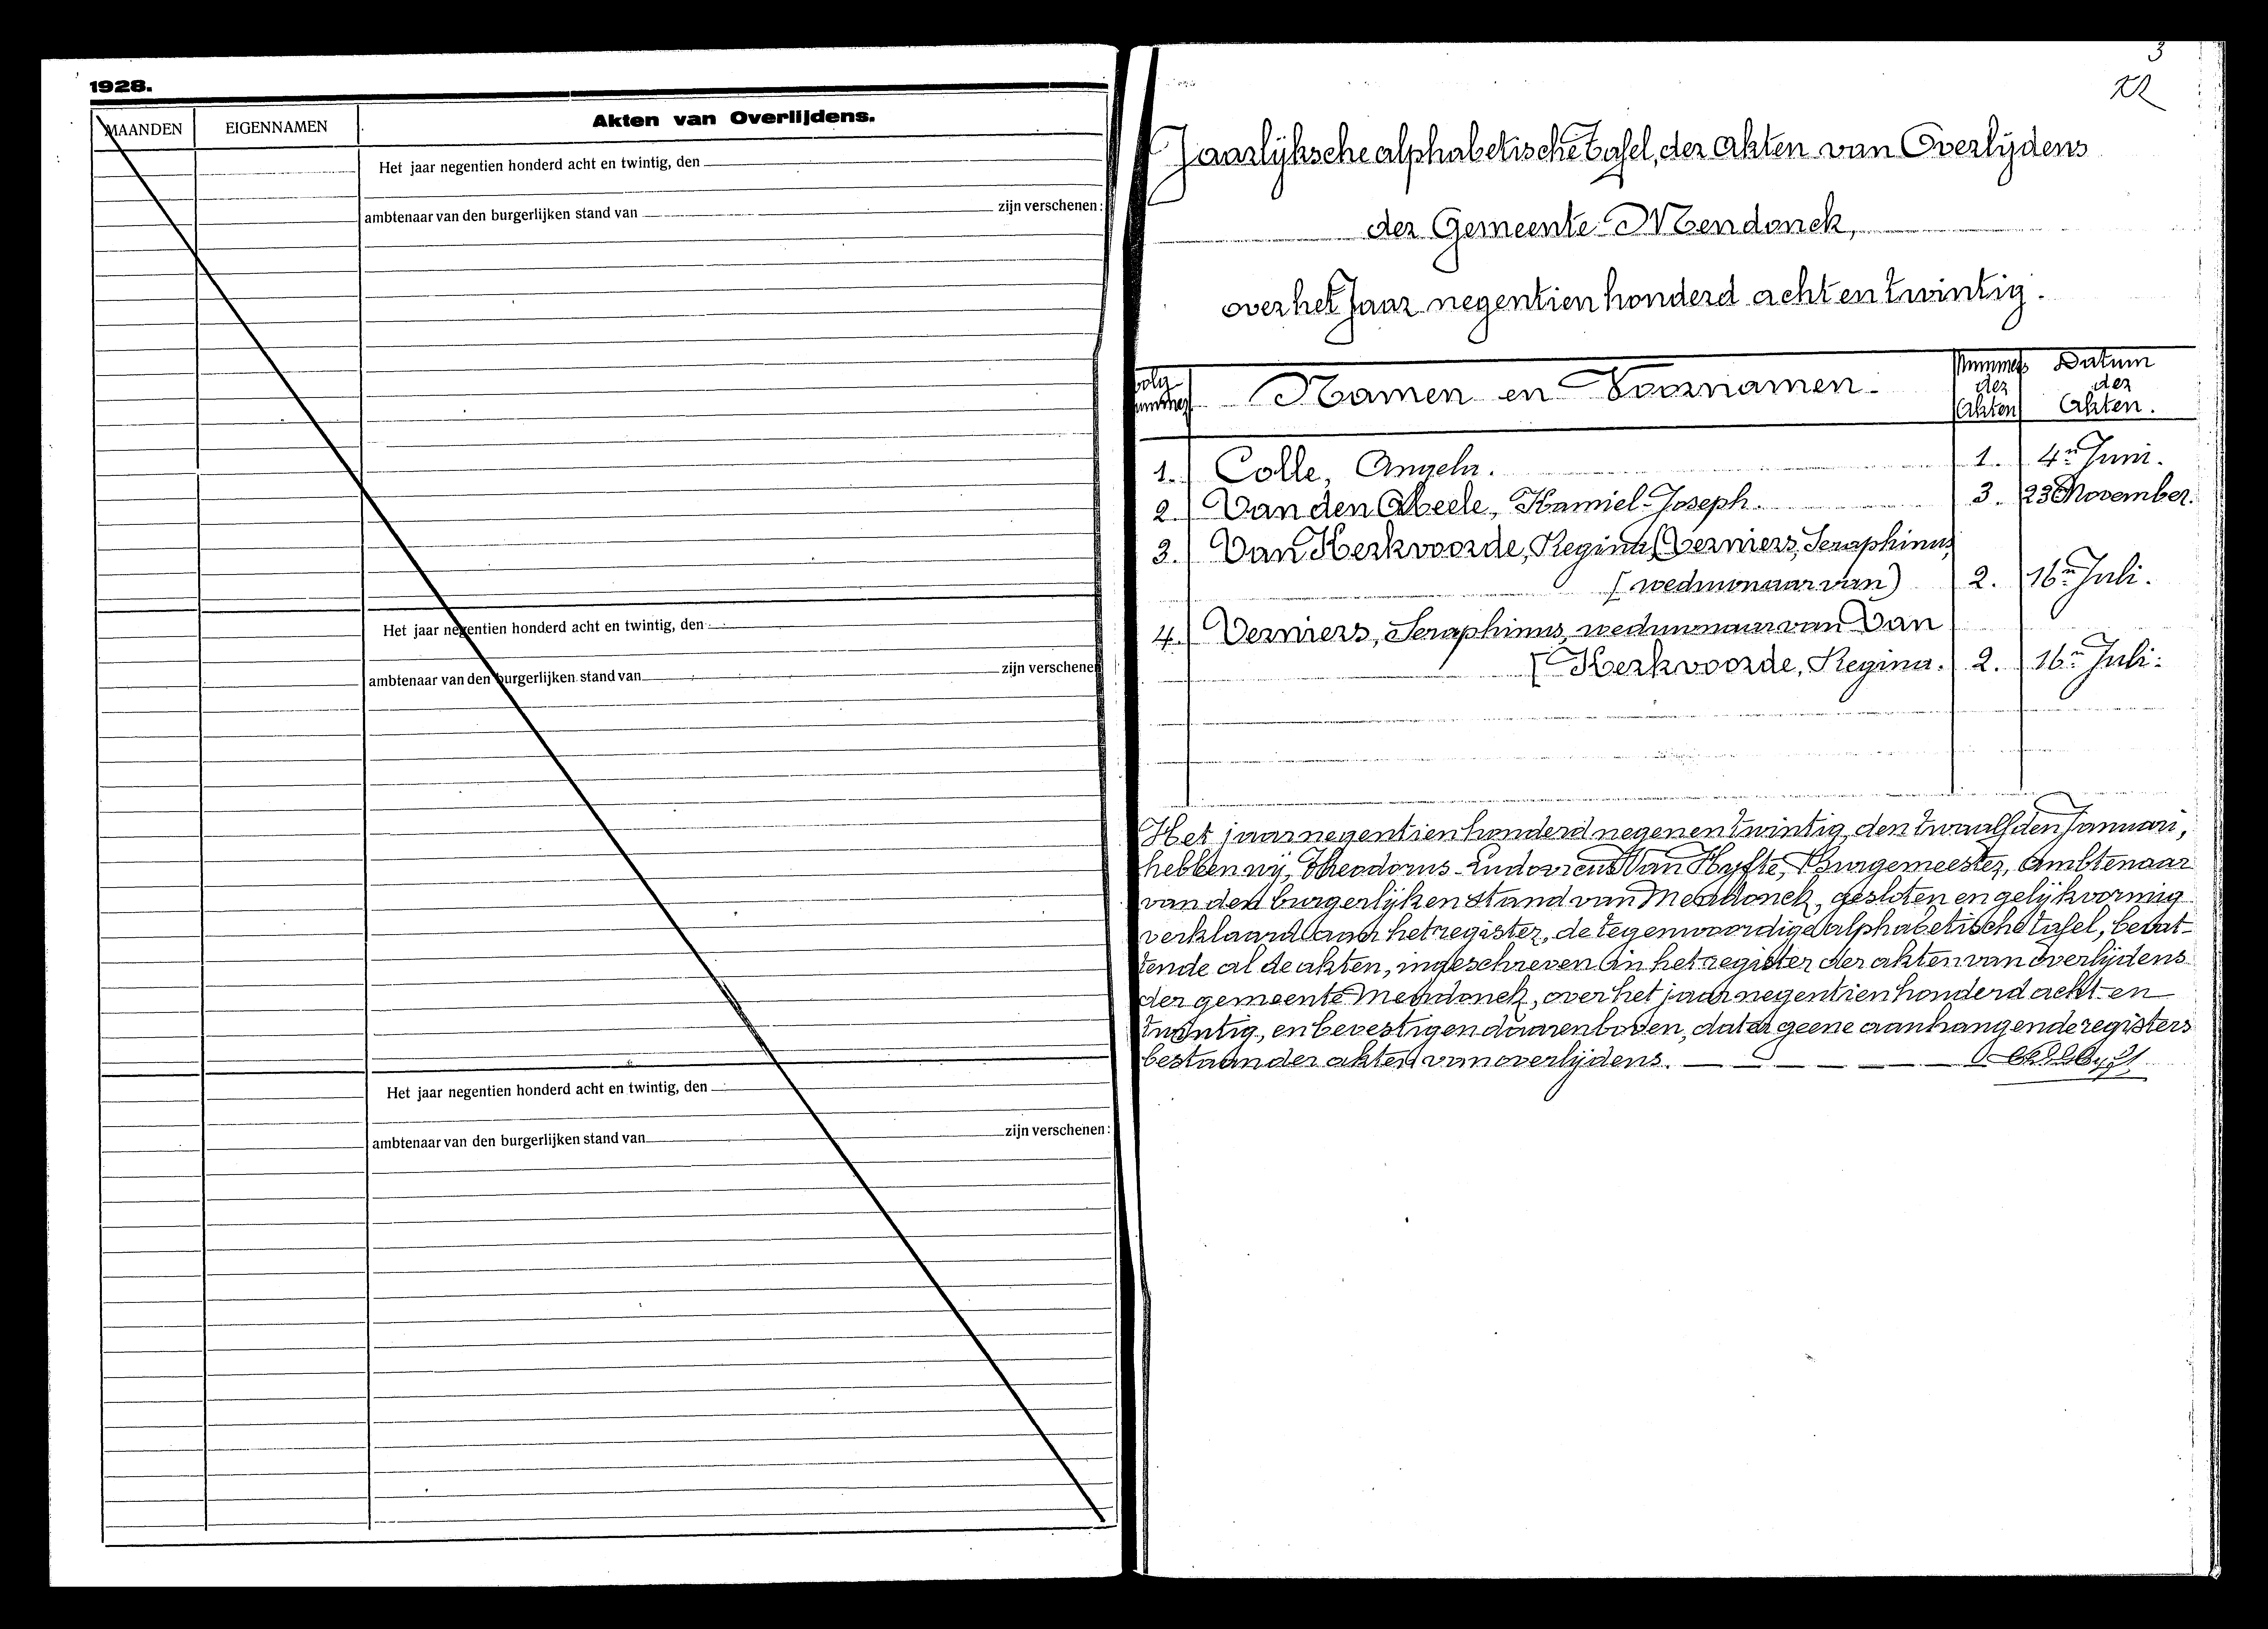 1928.
MAANDEN
EIGENNAMEN
Akten van Overlijdens.
Het jaar negentien honderd acht en twintig, den
ambtenaar van den burgerlijken stand van zijn verschenen:
Het jaar negentien honderd acht en twintig, den
ambtenaar van den burgerlijken stand van zijn verschenen
Het jaar negentien honderd acht en twintig, den
ambtenaar van den burgerlijken stand van zijn verschenen:
3
Jaarlijksche alphabetische tafel, der akten van Overlijdens
der Gemeente Mendonck,
over het Jaar negentien honderd acht en twintig.
volg nummer
Namen en Voornamen.
Nummers der Akten
Datum der Akten.
1. Colle, Angela. 1. 4n Juni.
2. Van den Abeele, Kamiel-Joseph. 3. 23n November.
3. Van Kerkvoorde, Regina (Verniers, Seraphinus,
[weduwnaar van) 2. 16n Juli.
4. Verniers, Seraphinus, weduwnaar van Van
[Kerkvoorde, Regina. 2. 16n Juli.
Het jaar negentien honderd negen en twintig, den twaalfden Januari,
hebben wij, Theodorus-Ludovicus Van Hyfte, Burgemeester, ambtenaar
van den burgerlijken stand van Mendonck, gesloten en gelijkvormig
verklaard aan het register, de tegenwoordige alphabetische tafel, bevat-
tende al de akten, ingeschreven in het register der akten van overlijdens
der gemeente Mendonck, over het jaar negentien honderd acht en
twintig, en bevestigen daarenboven, dat er geene aanhangende registers
bestaan der akten van overlijdens.